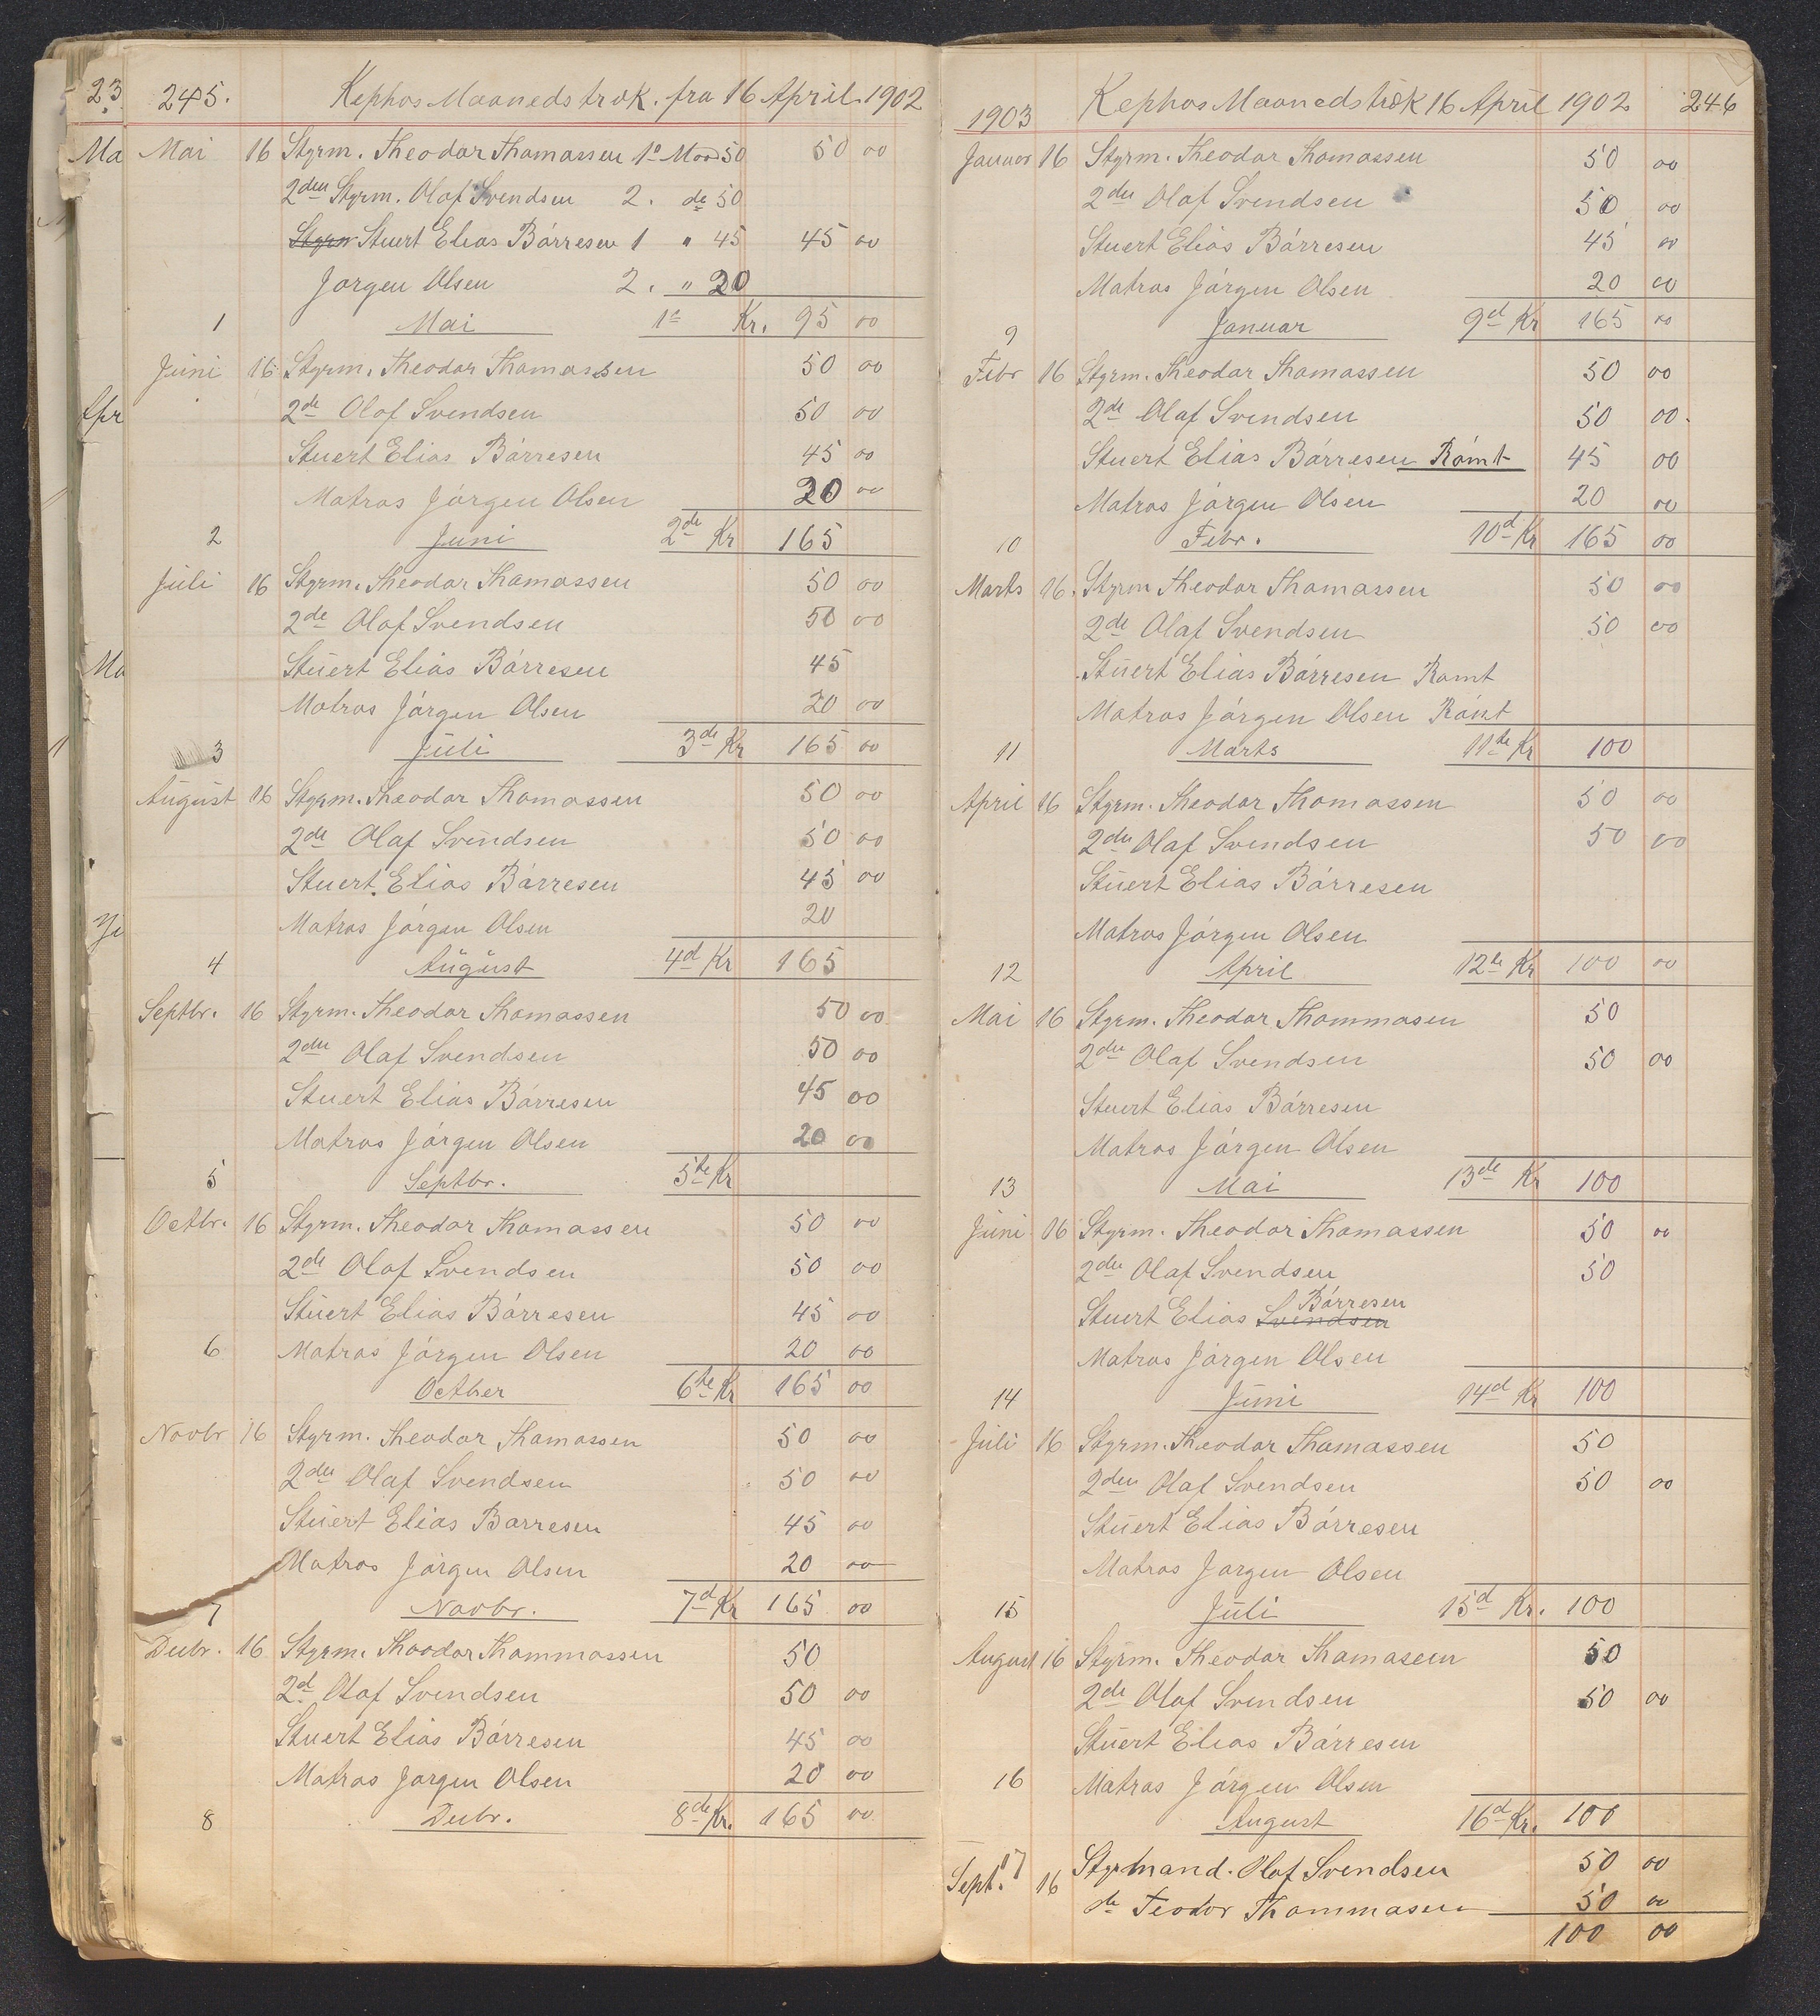 23
Ma
Apr
Ma
245. Kephos Maanedstræk. fra 16 April 1902
Mai 16 Styrm. Theodor Thomassen 1e Maa 50 50 00
2den Styrm. Olaf Svendsen 2. de 50
Styrm Stuert Elias Bórresen 1 " 45 45 00
Jorgen Olsen 2. " 20
1 Mai 1e Kr. 95 00
Juni 16 Styrm. Theodor Thomassen 50 00
2de Olaf Svendsen 50 00
Stuert Elias Bórresen 45 00
Matros Jórgen Olsen 20 00
2 Juni 2de Kr 165
Juli 16 Styrm. Theodor Thomassen 50 00
2de Olaf Svendsen 50 00
Stuert Elias Bórresen 45
Matros Jórgen Olsen 20 00
3 Juli 3de Kr 165 00
August 16 Styrm. Theodor Thomassen 50 00
2de Olaf Svendsen 50 00
Stuert Elias Bórresen 45 00
Matros Jórgen Olsen 20
4 August 4d Kr 165
Septbr. 16 Styrm. Theodor Thomassen 50 00
2den Olaf Svendsen 50 00
Stuert Elias Bórresen 45 00
Matros Jórgen Olsen 20 00
5 Septbr. 5te Kr
Octbr. 16 Styrm. Theodor Thomassen 50 00
2de Olaf Svendsen 50 00
Stuert Elias Bórresen 45 00
6 Matros Jórgen Olsen 20 00
Octber 6te Kr 165 00
Novbr 16 Styrm. Theodor Thomassen 50 00
2den Olaf Svendsen 50 00
Stuert Elias Borresen 45 00
Matros Jórgen Olsen 20 00
7 Novbr. 7d Kr 165 00
Decbr. 16 Styrm. Thoodor Thommassen 50
2d Olaf Svendsen 50 00
Stuert Elias Bórresen 45 00
Matros Jorgen Olsen 20 00
8 Decbr. 8de Kr. 165 00
1903 Kephos Maanedstræk 16 April 1902 246
Januar 16 Styrm. Theodor Thomassen 50 00
2den Olaf Svendsen 50 00
Stuert Elias Bórresen 45 00
Matros Jórgen Olsen 20 00
9 Januar 9d Kr 165 00
Febr 16 Styrm. Theodor Thomassen 50 00
2de Olaf Svendsen 50 00.
Stuert Elias Bórresen Rómt 45 00
Matros Jórgen Olsen 20 00
10 Febr. 10d Kr 165 00
Marts 16. Styrm Theodor Thomassen 50 00
2de Olaf Svendsen 50 00
Stuert Elias Bórresen Romt
Matros Jórgen Olsen Rómt
11 Marts 11te Kr 100
April 16 Styrm. Theodor Thomassen 50 00
2den Olaf Svendsen 50 00
Stuert Elias Bórresen
Matros Jórgen Olsen
12 April 12te Kr 100 00
Mai 16 Styrm. Theodor Thommasen 50
2den Olaf Svendsen 50 00
Stuert Elias Bórresen
Matros Jórgen Olsen
13 Mai 13de Kr 100
Juni 16 Styrm. Theodor Thomassen 50 00
2den Olaf Svendsen 50
Bórresen
Stuert Elias Svendsen
Matros Jórgen Olsen
14 Juni 14d Kr 100
Juli 16 Styrm. Theodor Thomassen 50
2den Olaf Svendsen 50 00
Stuert Elias Bórresen
Matros Jorgen Olsen
15 Juli 15d Kr. 100
August 16 Styrm. Theodor Thomasen 50
2de Olaf Svendsen 50 00
Stuert Elias Bórresen
16 Matros Jórgen Olsen
August 16d Kr. 100
17
Sept. 16 Styrmand. Olaf Svendsen 50 00
de Teodor Thommasen 50 00
100 00